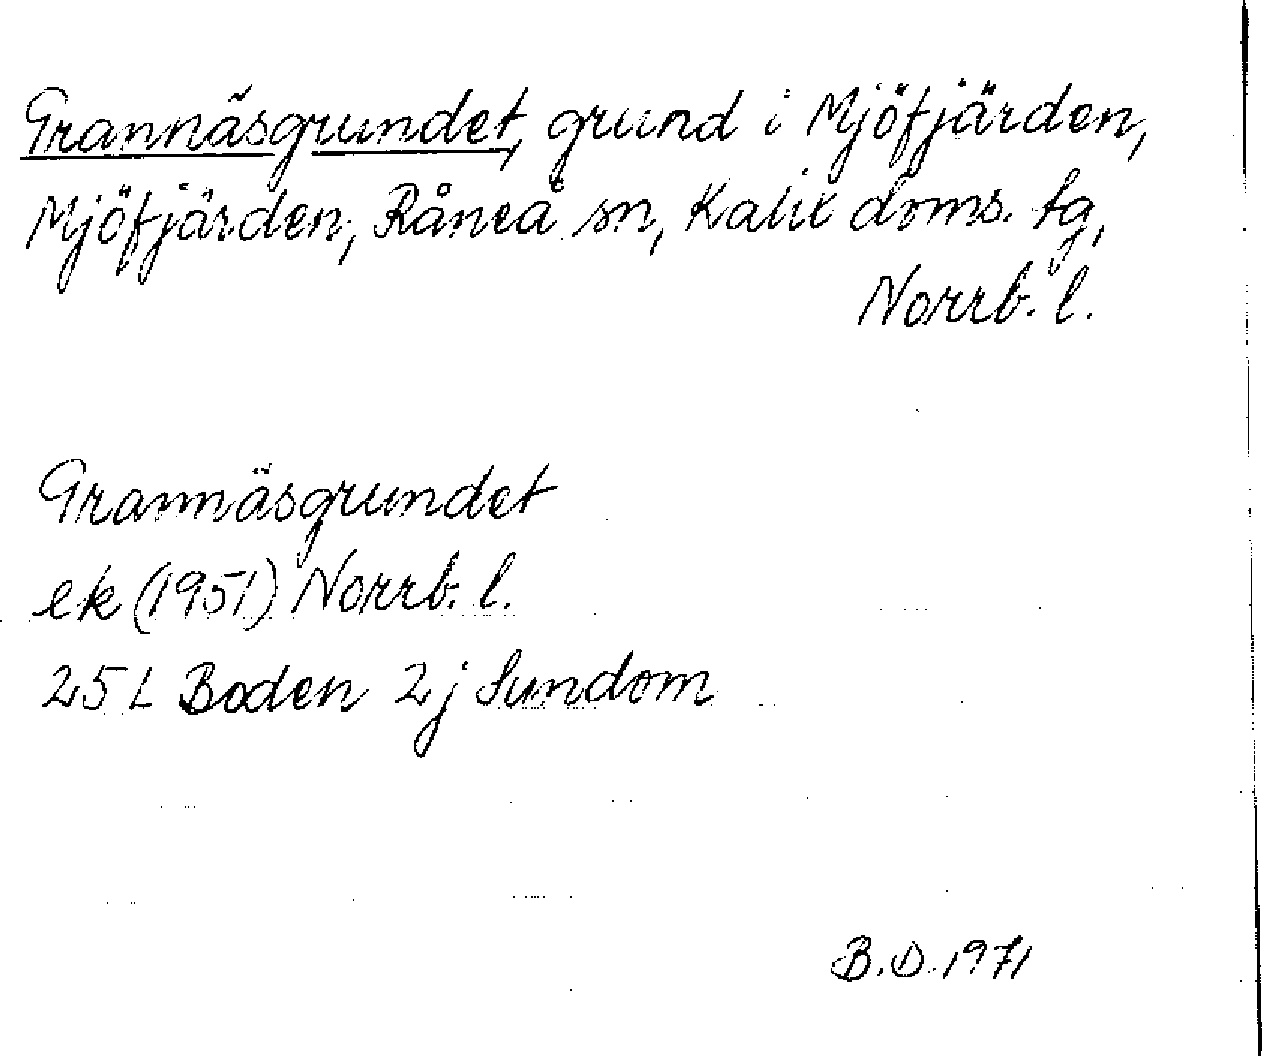 Grannäsgrundet, grund i Mjöfjärden,
Mjöfjärden, Råneå sn, Kalix doms. tg,
Norrb. l.
Grannäsgrundet
ek (1951) Norrb. l.
25 L Boden 2j Sundom
B.D. 1971